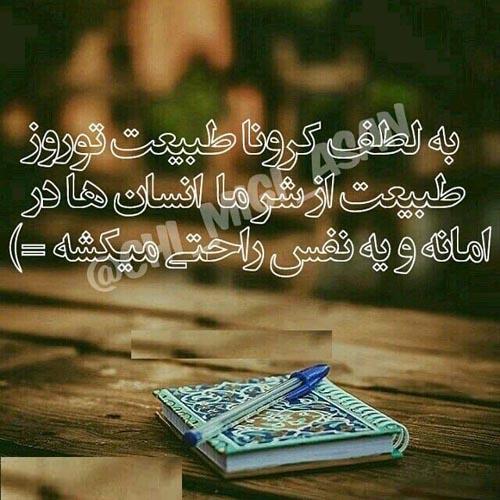 به لطف کرونا طبیعت توروز
طبیعت از شر ما انسان ها در
امانه و یه نفس راحتی میکشه =)
@CHI_MIGI_ASAN